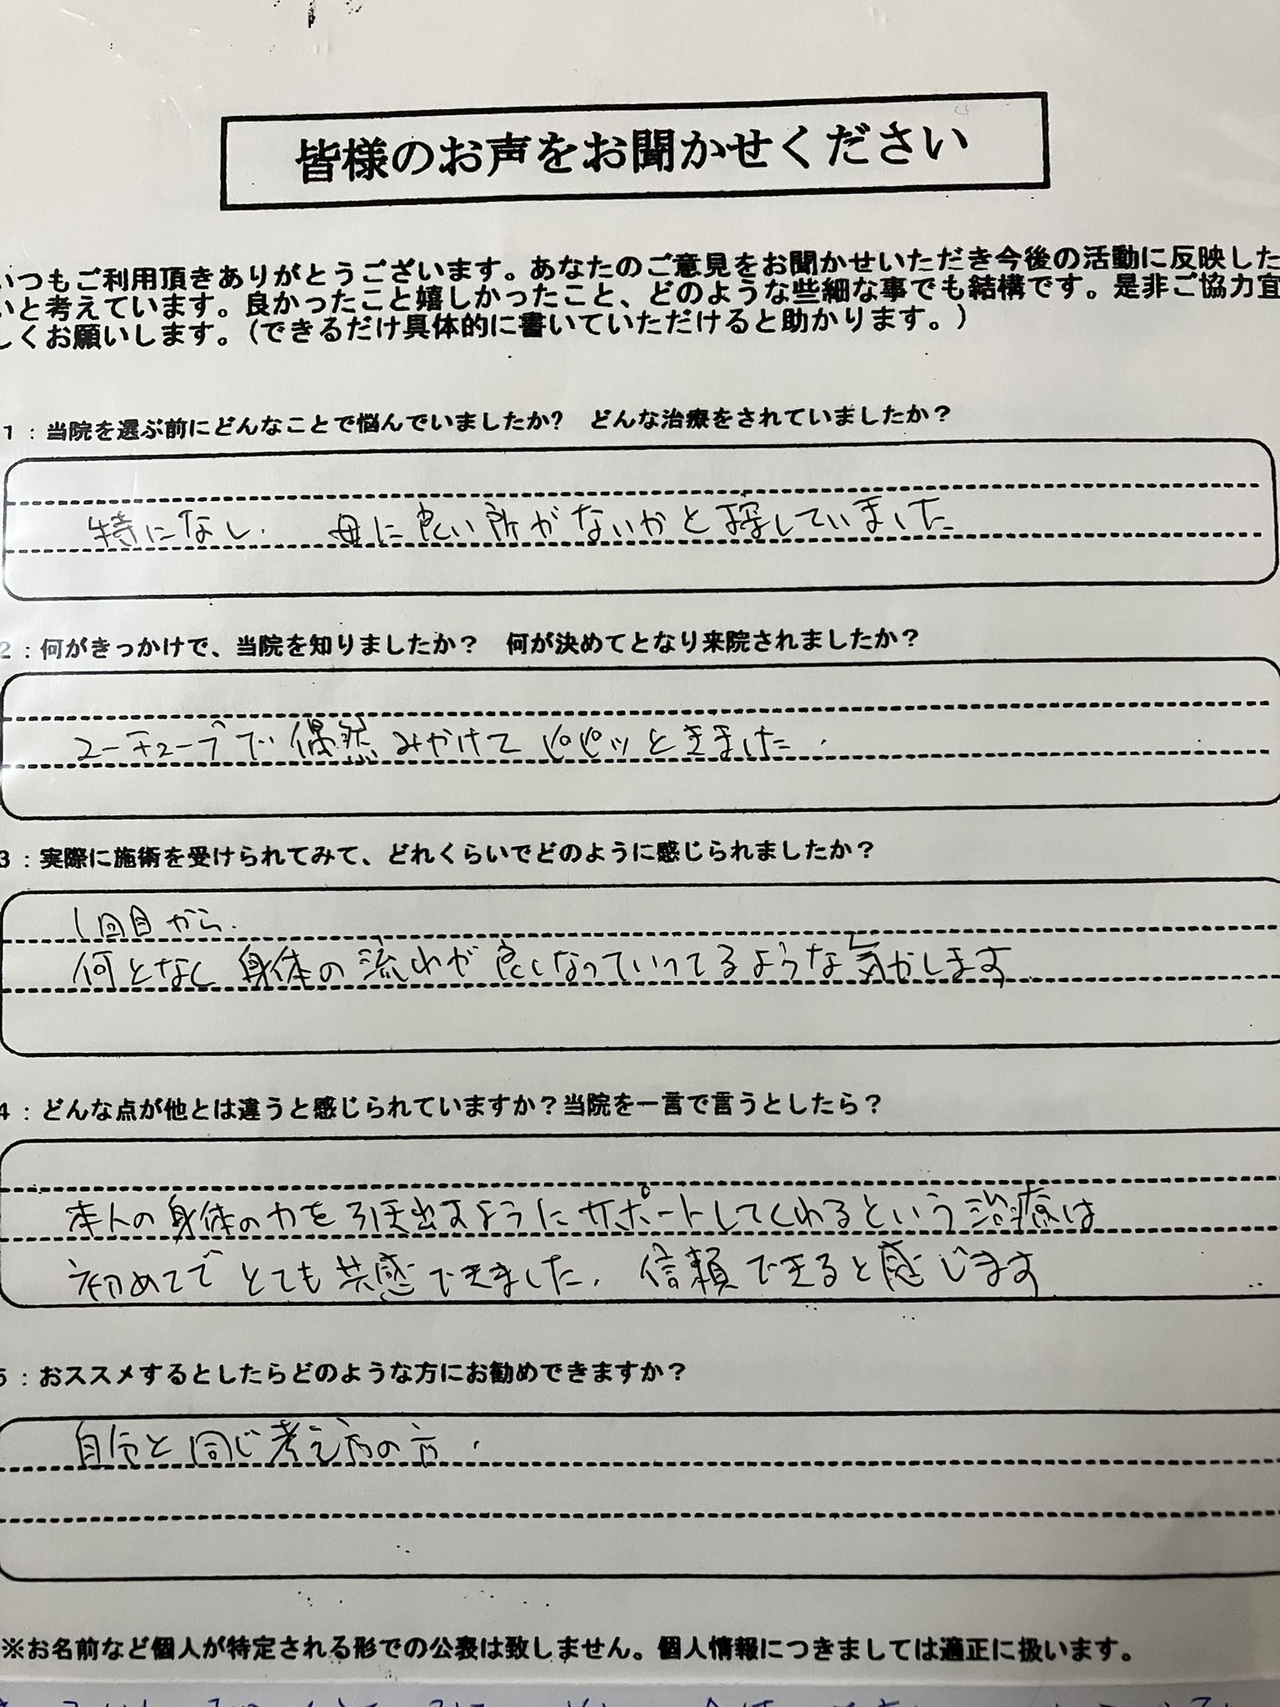 皆様のお声をお聞かせください
いつもご利用頂きありがとうございます。あなたのご意見をお聞かせいただき今後の活動に反映した
いと考えています。良かったこと嬉しかったこと、どのような些細な事でも結構です。是非ご協力宜
しくお願いします。(できるだけ具体的に書いていただけると助かります。)
1:当院を選ぶ前にどんなことで悩んでいましたか? どんな治療をされていましたか?
特になし. 母に良い所がないかと探していました
2:何がきっかけで、当院を知りましたか? 何が決めてとなり来院されましたか?
ユーチューブで偶然みかけてピピッときました.
3:実際に施術を受けられてみて、どれくらいでどのように感じられましたか?
1回目から.
何となく身体の流れが良くなっていってるような気がします.
4:どんな点が他とは違うと感じられていますか?当院を一言で言うとしたら?
本人の身体の力を引き出すようにサポートしてくれるという治療は
初めてでとても共感できました. 信頼できると感じます
5:おススメするとしたらどのような方にお勧めできますか?
自分と同じ考え方の方.
※お名前など個人が特定される形での公表は致しません。個人情報につきましては適正に扱います。